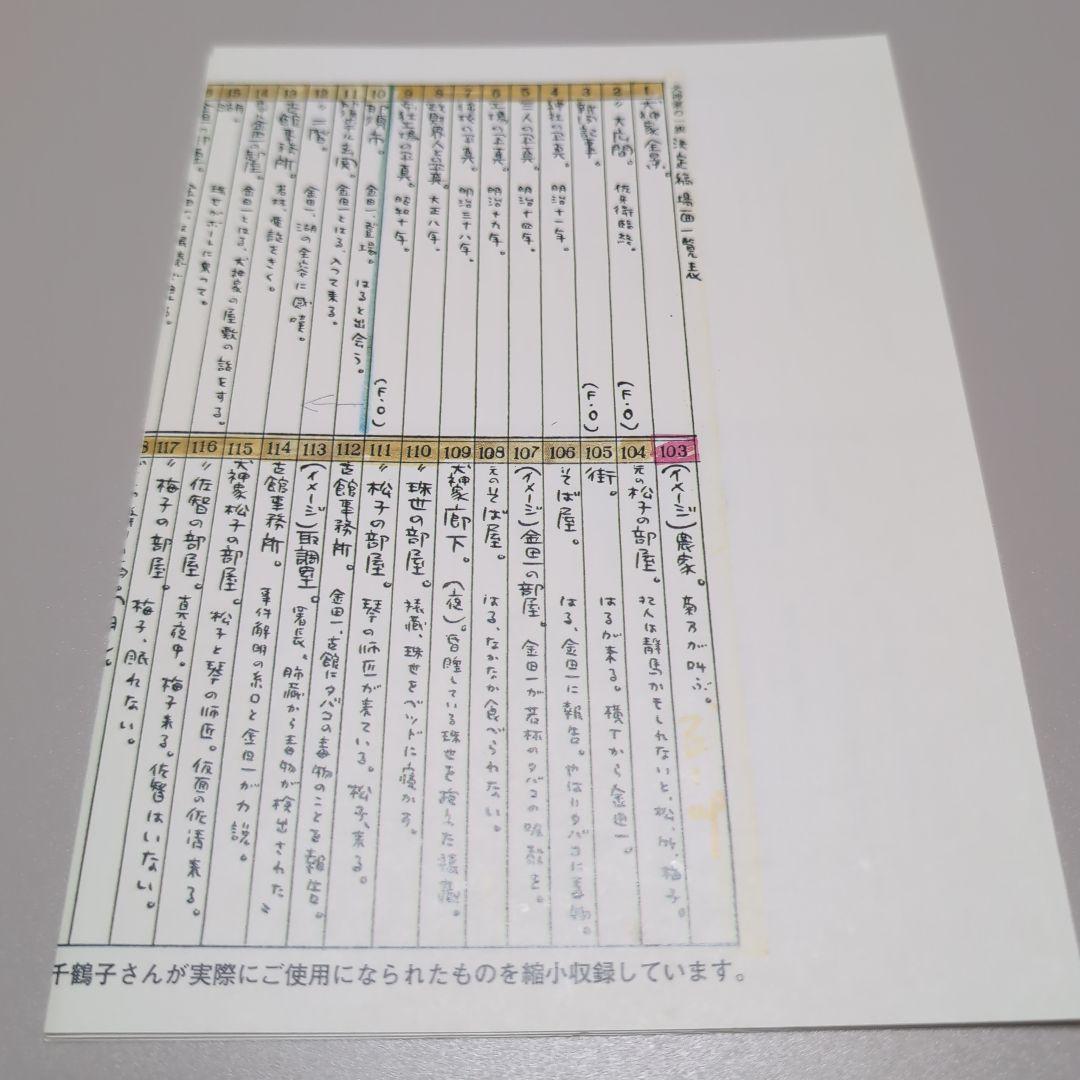 犬神家の一族 決定稿 場面一覧表
1 犬神家全景。
2 〃 大広間。 佐兵衛臨終。 (F・O)
3 新聞記事。 (F・O)
4 の写真。 明治十一年。
5 三人の写真。 明治十四年。
6 工場の写真。 明治十九年。
7 の写真。 明治三十八年。
8 政財界人との写真。 大正八年。
9 の写真。 昭和十年。 (F・O)
10 那須市。 金田一、登場。 はると出会う。
11 那須ホテル玄関。 金田一とはる、入って来る。
12 〃 二階。 金田一、湖の全景に感嘆。
13 古館事務所。 若林、電話をきく。
14 金田一の部屋。 金田一とはる、犬神家の屋敷の話をする。
15 湖。 珠世がボートに乗って。
103 (イメージ)農家。 菊乃が叫ぶ。
104 元の松子の部屋。 犯人は静馬かもしれないと、松、竹、梅子。
105 街。 はるが来る。横丁から金田一。
106 そば屋。 はる、金田一に報告。やはりタバコに毒物。
107 (イメージ)金田一の部屋。 金田一が若林のタバコの吸殻を。
108 元のそば屋。 はる、なかなか食べられない。
109 犬神家廊下。 (夜)。昏睡している珠世を抱えた猿蔵。
110 〃 珠世の部屋。 猿蔵、珠世をベッドに寝かす。
111 〃 松子の部屋。 琴の師匠が来ている。松子、来る。
112 古館事務所。 金田一、古館にタバコの毒物のことを報告。
113 (イメージ)取調室。 署長、肺臓から毒物が検出された〃
114 古館事務所。 事件解明の糸口と金田一が力説。
115 犬神家松子の部屋。 松子と琴の師匠。仮面の佐清来る。
116 〃 佐智の部屋。 真夜中。梅子来る。佐智はいない。
117 〃 梅子の部屋。 梅子、眠れない。
千鶴子さんが実際にご使用になられたものを縮小収録しています。